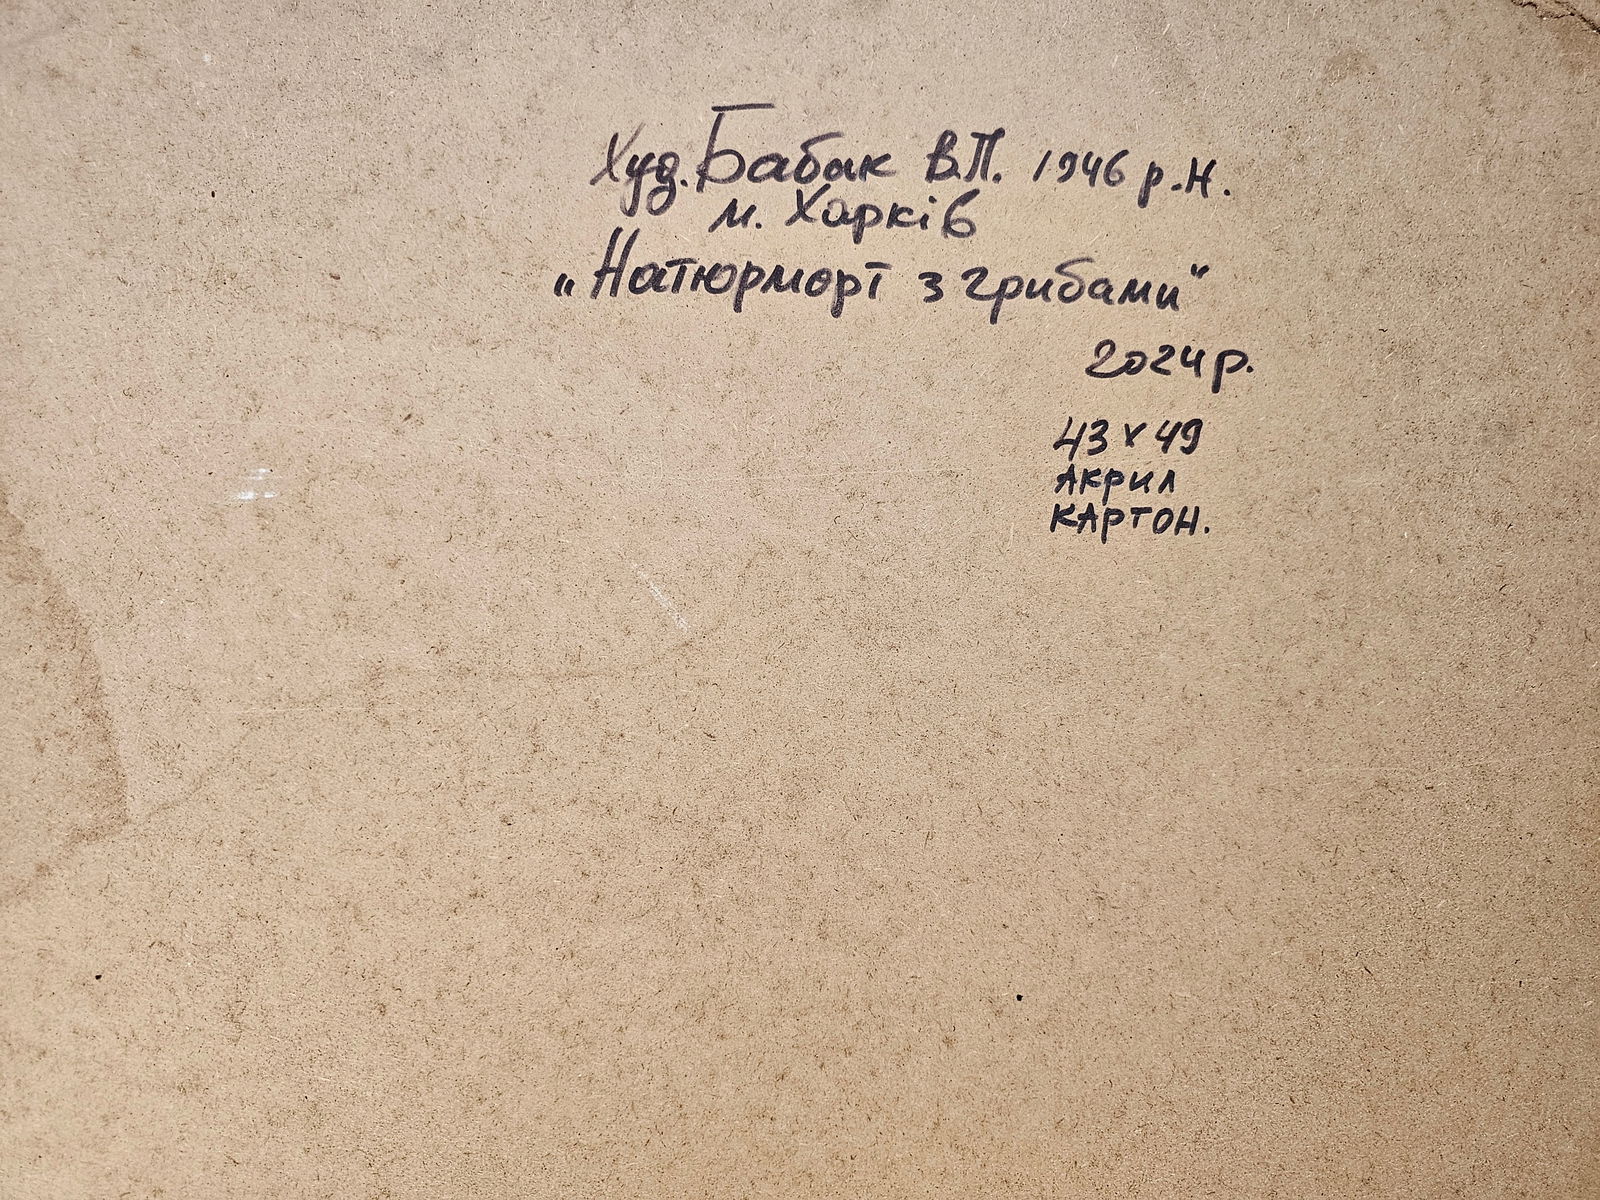 Худ. Бабак В.П. 1946 р.н.
м. Харків
„Натюрморт з грибами"
2024 р.
43 x 49
Акрил
КАРТОН.